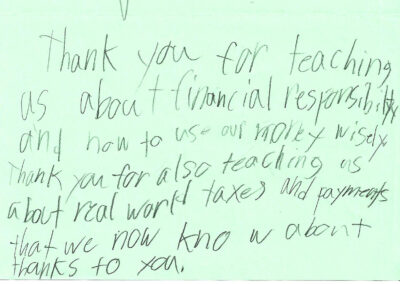 Thank you for teaching
us about financial responsibility
and how to use our money wisely
Thank you for also teaching us
about real world taxes and payments
that we now know about
thanks to you.